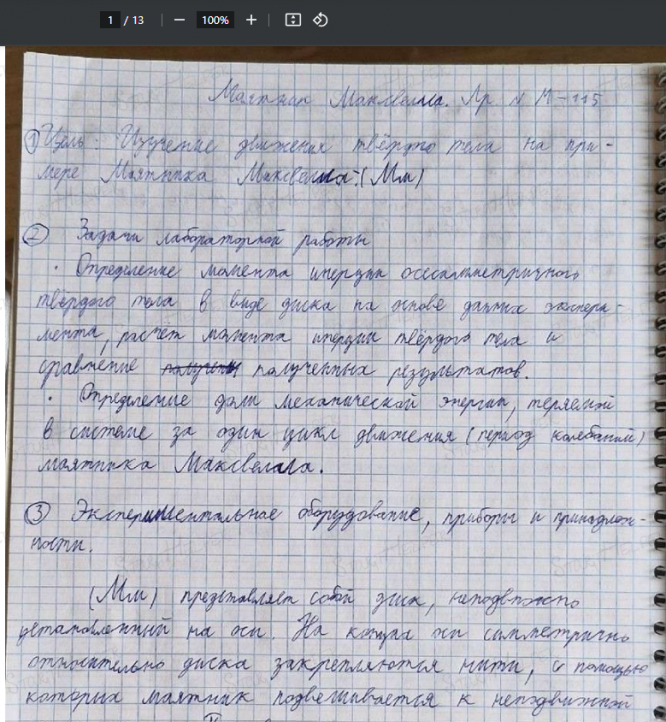 1 / 13 — 100% +
Маятник Максвелла. Лр № М-115
① Цель: Изучение движения твёрдого тела на при-
мере Маятника Максвелла. (Мм)
② Задачи лабораторной работы
· Определение момента инерции осесимметричного
твёрдого тела в виде диска на основе данных экспери-
мента, расчет момента инерции твёрдого тела и
сравнение полученных результатов.
· Определение доли механической энергии, теряемой
в системе за один цикл движения (период колебаний)
маятника Максвелла.
③ Экспериментальное оборудование, приборы и принадлеж-
ности.
(Мм) представляет собой диск, неподвижно
установленный на оси. На концах оси симметрично
относительно диска закрепляются нити, с помощью
которых маятник подвешивается к неподвижной